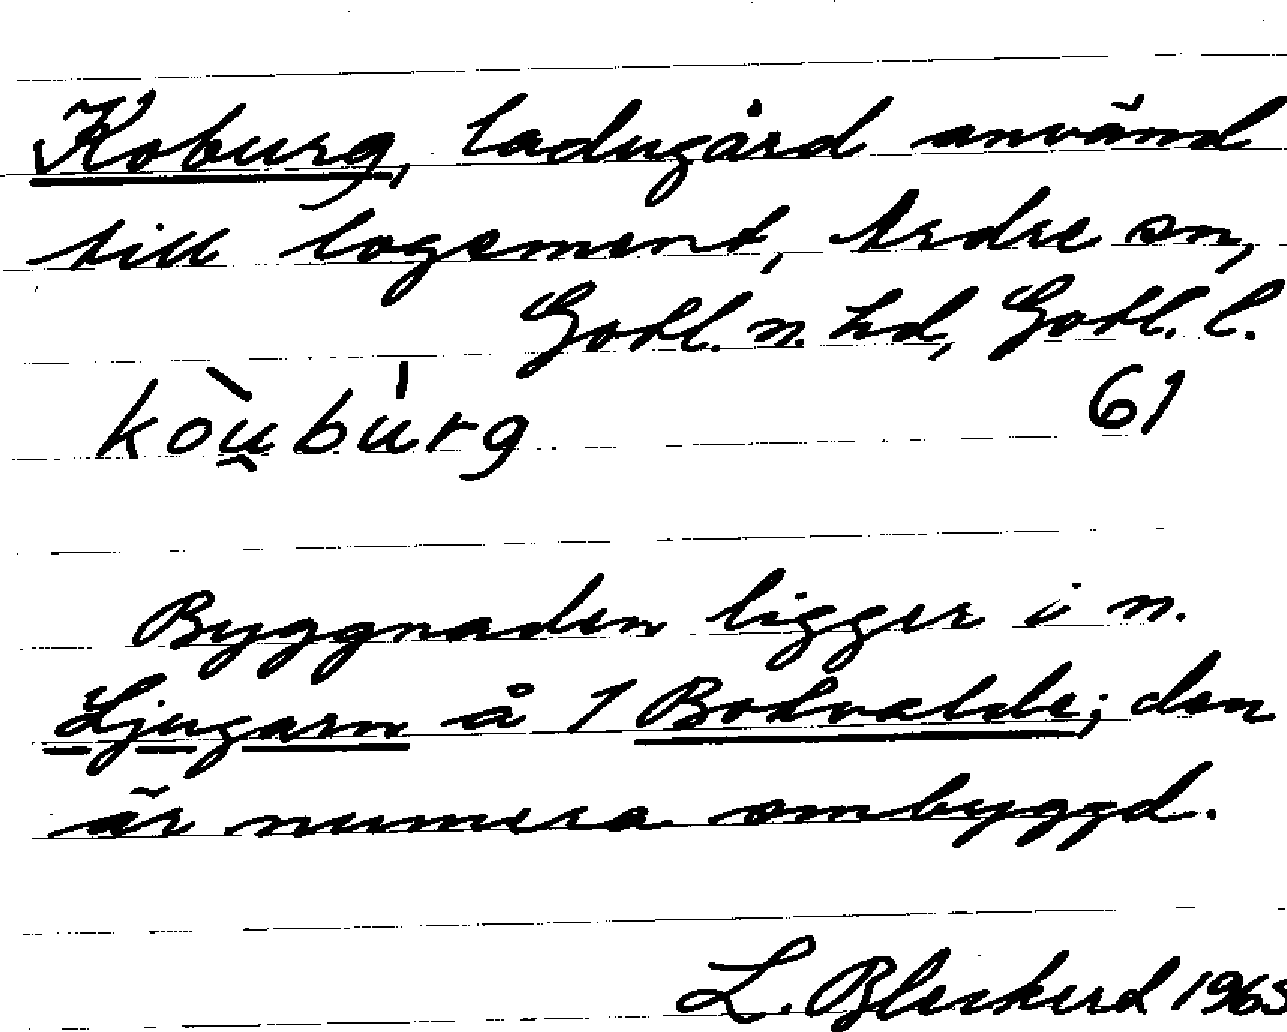 Koburg, ladugård använd
till logement, Ardre sn,
Gotl. n. hd, Gotl. l.
61
kòu̯bùrg
Byggnaden ligger i n.
Ljugarn å 1 Bodvalde; den
är numera ombyggd.
L. Bleckerd 1963